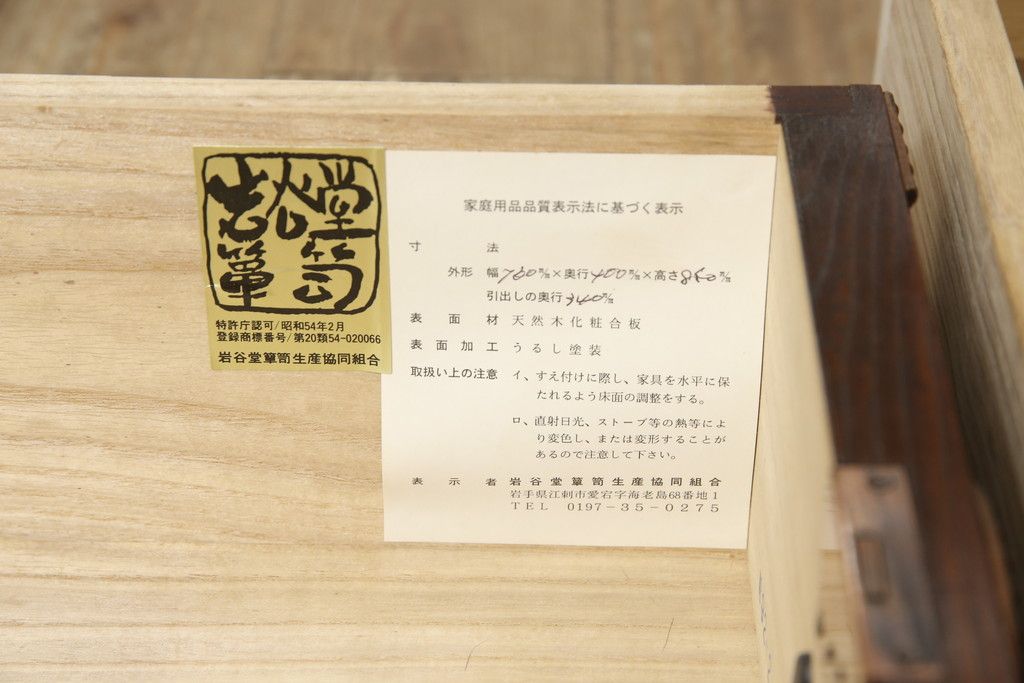 岩谷堂簞笥
特許庁認可/昭和54年2月
登録商標番号/第20類54-020066
岩谷堂簞笥生産協同組合
家庭用品品質表示法に基づく表示
寸法
外形 幅760㎜×奥行400㎜×高さ880㎜
引出しの奥行340㎜
表面材 天然木化粧合板
表面加工 うるし塗装
取扱い上の注意 イ、すえ付けに際し、家具を水平に保
たれるよう床面の調整をする。
ロ、直射日光、ストーブ等の熱等によ
り変色し、または変形することが
あるので注意して下さい。
表示者 岩谷堂簞笥生産協同組合
岩手県江刺市愛宕字海老島68番地1
TEL 0197-35-0275